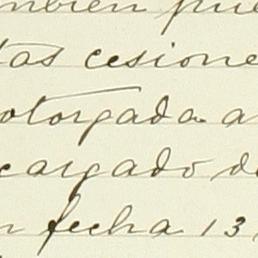 mbien pue
tas cesione
otorgada a
cargado de
n fecha 13,